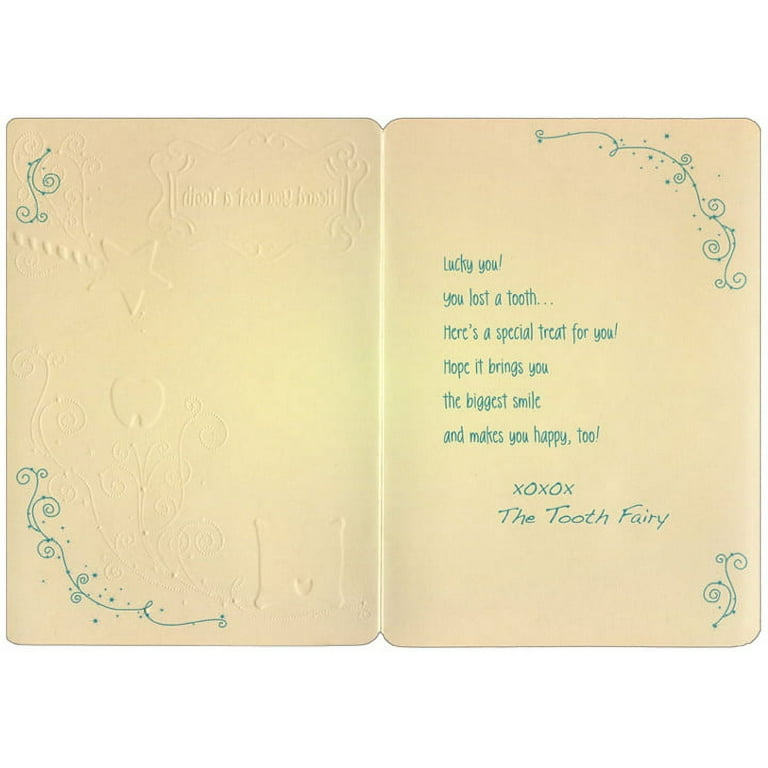 Heard You Lost a Tooth
Lucky you!
you lost a tooth...
Here's a special treat for you!
Hope it brings you
the biggest smile
and makes you happy, too!
XOXOX
The Tooth Fairy